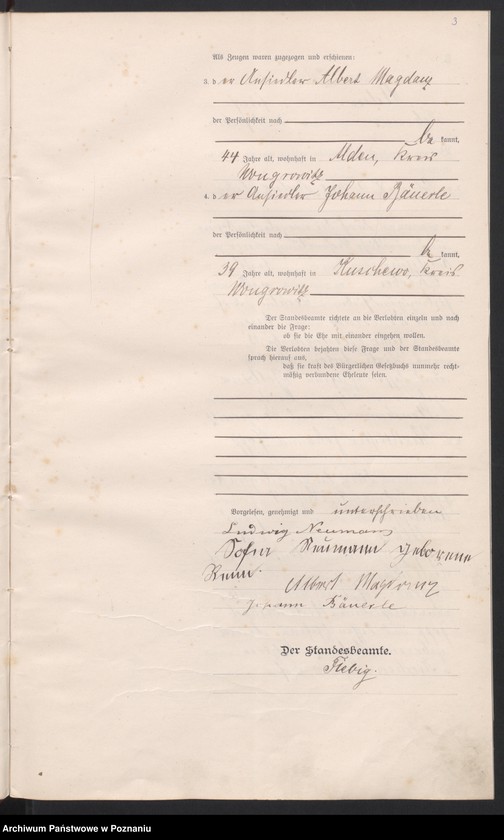 3
Als Zeugen waren zugezogen und erschienen:
3. der Ansiedler Albert Magdanz
der Persönlichkeit nach
be kannt,
44 Jahre alt, wohnhaft in Alden, Kreis
Wongrowitz
4. der Ansiedler Johann Bäuerle
der Persönlichkeit nach
be kannt,
39 Jahre alt, wohnhaft in Kuschewo, Kreis
Wongrowitz
Der Standesbeamte richtete an die Verlobten einzeln und nach
einander die Frage:
ob sie die Ehe mit einander eingehen wollen.
Die Verlobten bejahten diese Frage und der Standesbeamte
sprach hierauf aus,
daß sie kraft des Bürgerlichen Gesetzbuchs nunmehr recht-
mäßig verbundene Eheleute seien.
Vorgelesen, genehmigt und unterschrieben
Ludwig Neumann
Sofia Neumann geborene
Albert Magdanz
Johann Bäuerle
Der Standesbeamte.
Fiebig.
Archiwum Państwowe w Poznaniu